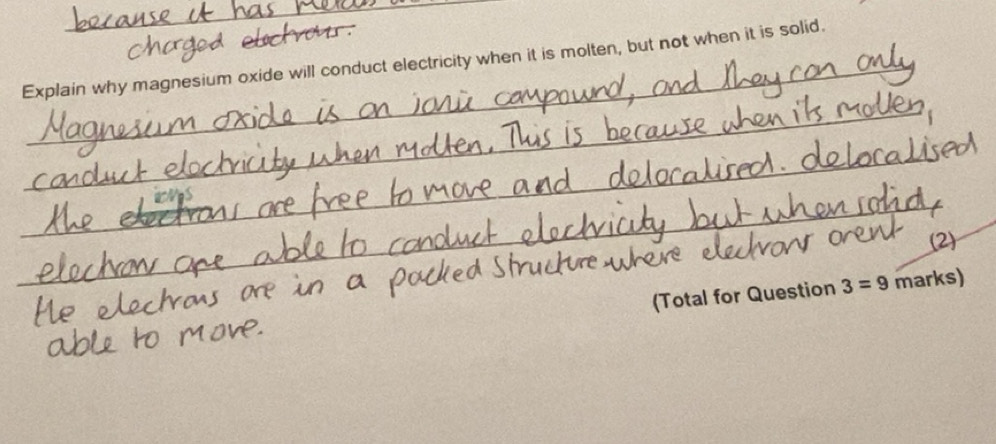 because it has
charged electrons.
Explain why magnesium oxide will conduct electricity when it is molten, but not when it is solid.
Magnesium oxide is an ionic compound, and they can only
conduct electricity when molten. This is because when its molten,
ions
the electrons are free to move and delocalised. delocalised
electrons are able to conduct electricity but when solid,
the electrons are in a packed structure where electrons arent
(2)
able to move.
(Total for Question 3 = 9 marks)